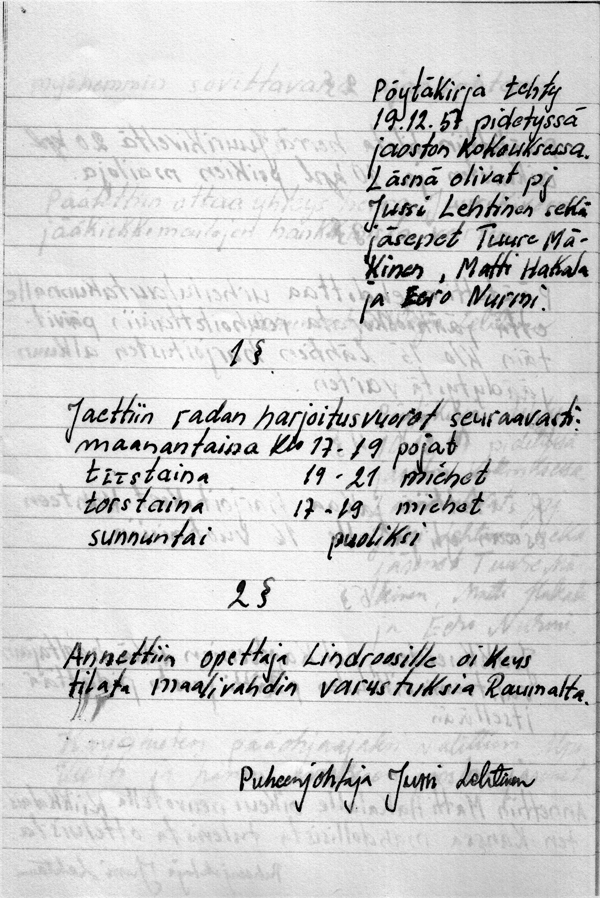 Pöytäkirja tehty
19.12.57 pidetyssä
jaoston kokouksessa.
Läsnä olivat pj
Jussi Lehtinen sekä
jäsenet Tuure Mä-
kinen, Matti Hakala
ja Eero Nurmi.
1 §
Jaettiin radan harjoitusvuorot seuraavasti:
maanantaina klo 17-19 pojat
tiistaina 19-21 miehet
torstaina 17-19 miehet
sunnuntai puoliksi
2 §
Annettiin opettaja Lindroosille oikeus
tilata maalivahdin varustuksia Raumalta.
Puheenjohtaja Jussi Lehtinen